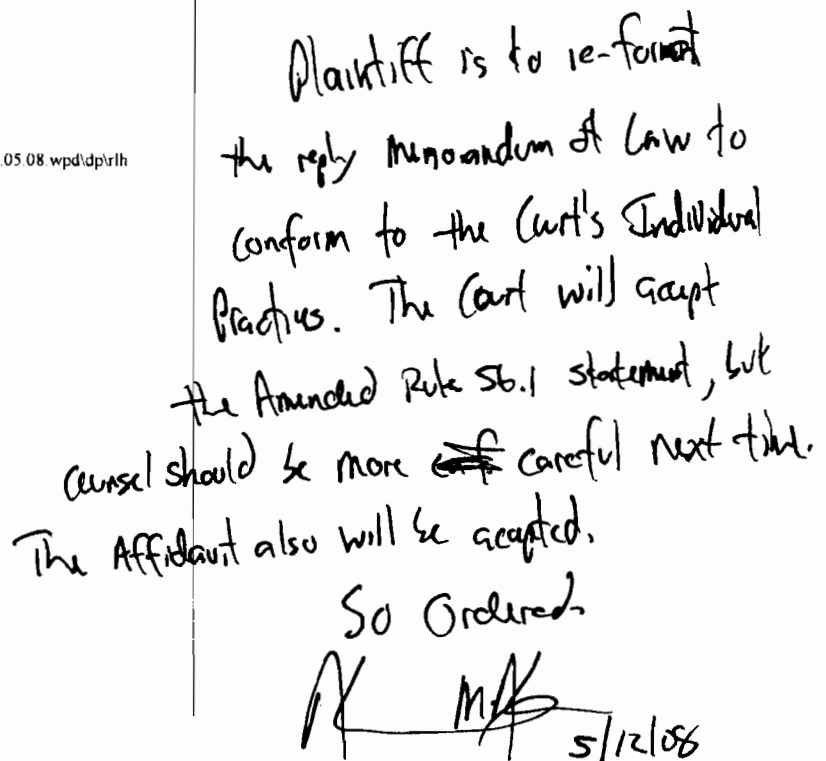 Plaintiff is to re-format
.05.08.wpd\dp\rlh
the reply Memorandum of Law to
conform to the Court's Individual
Practices. The Court will accept
the Amended Rule 56.1 statement, but
counsel should be more careful next time.
The Affidavit also will be accepted.
So Ordered.
5/12/08